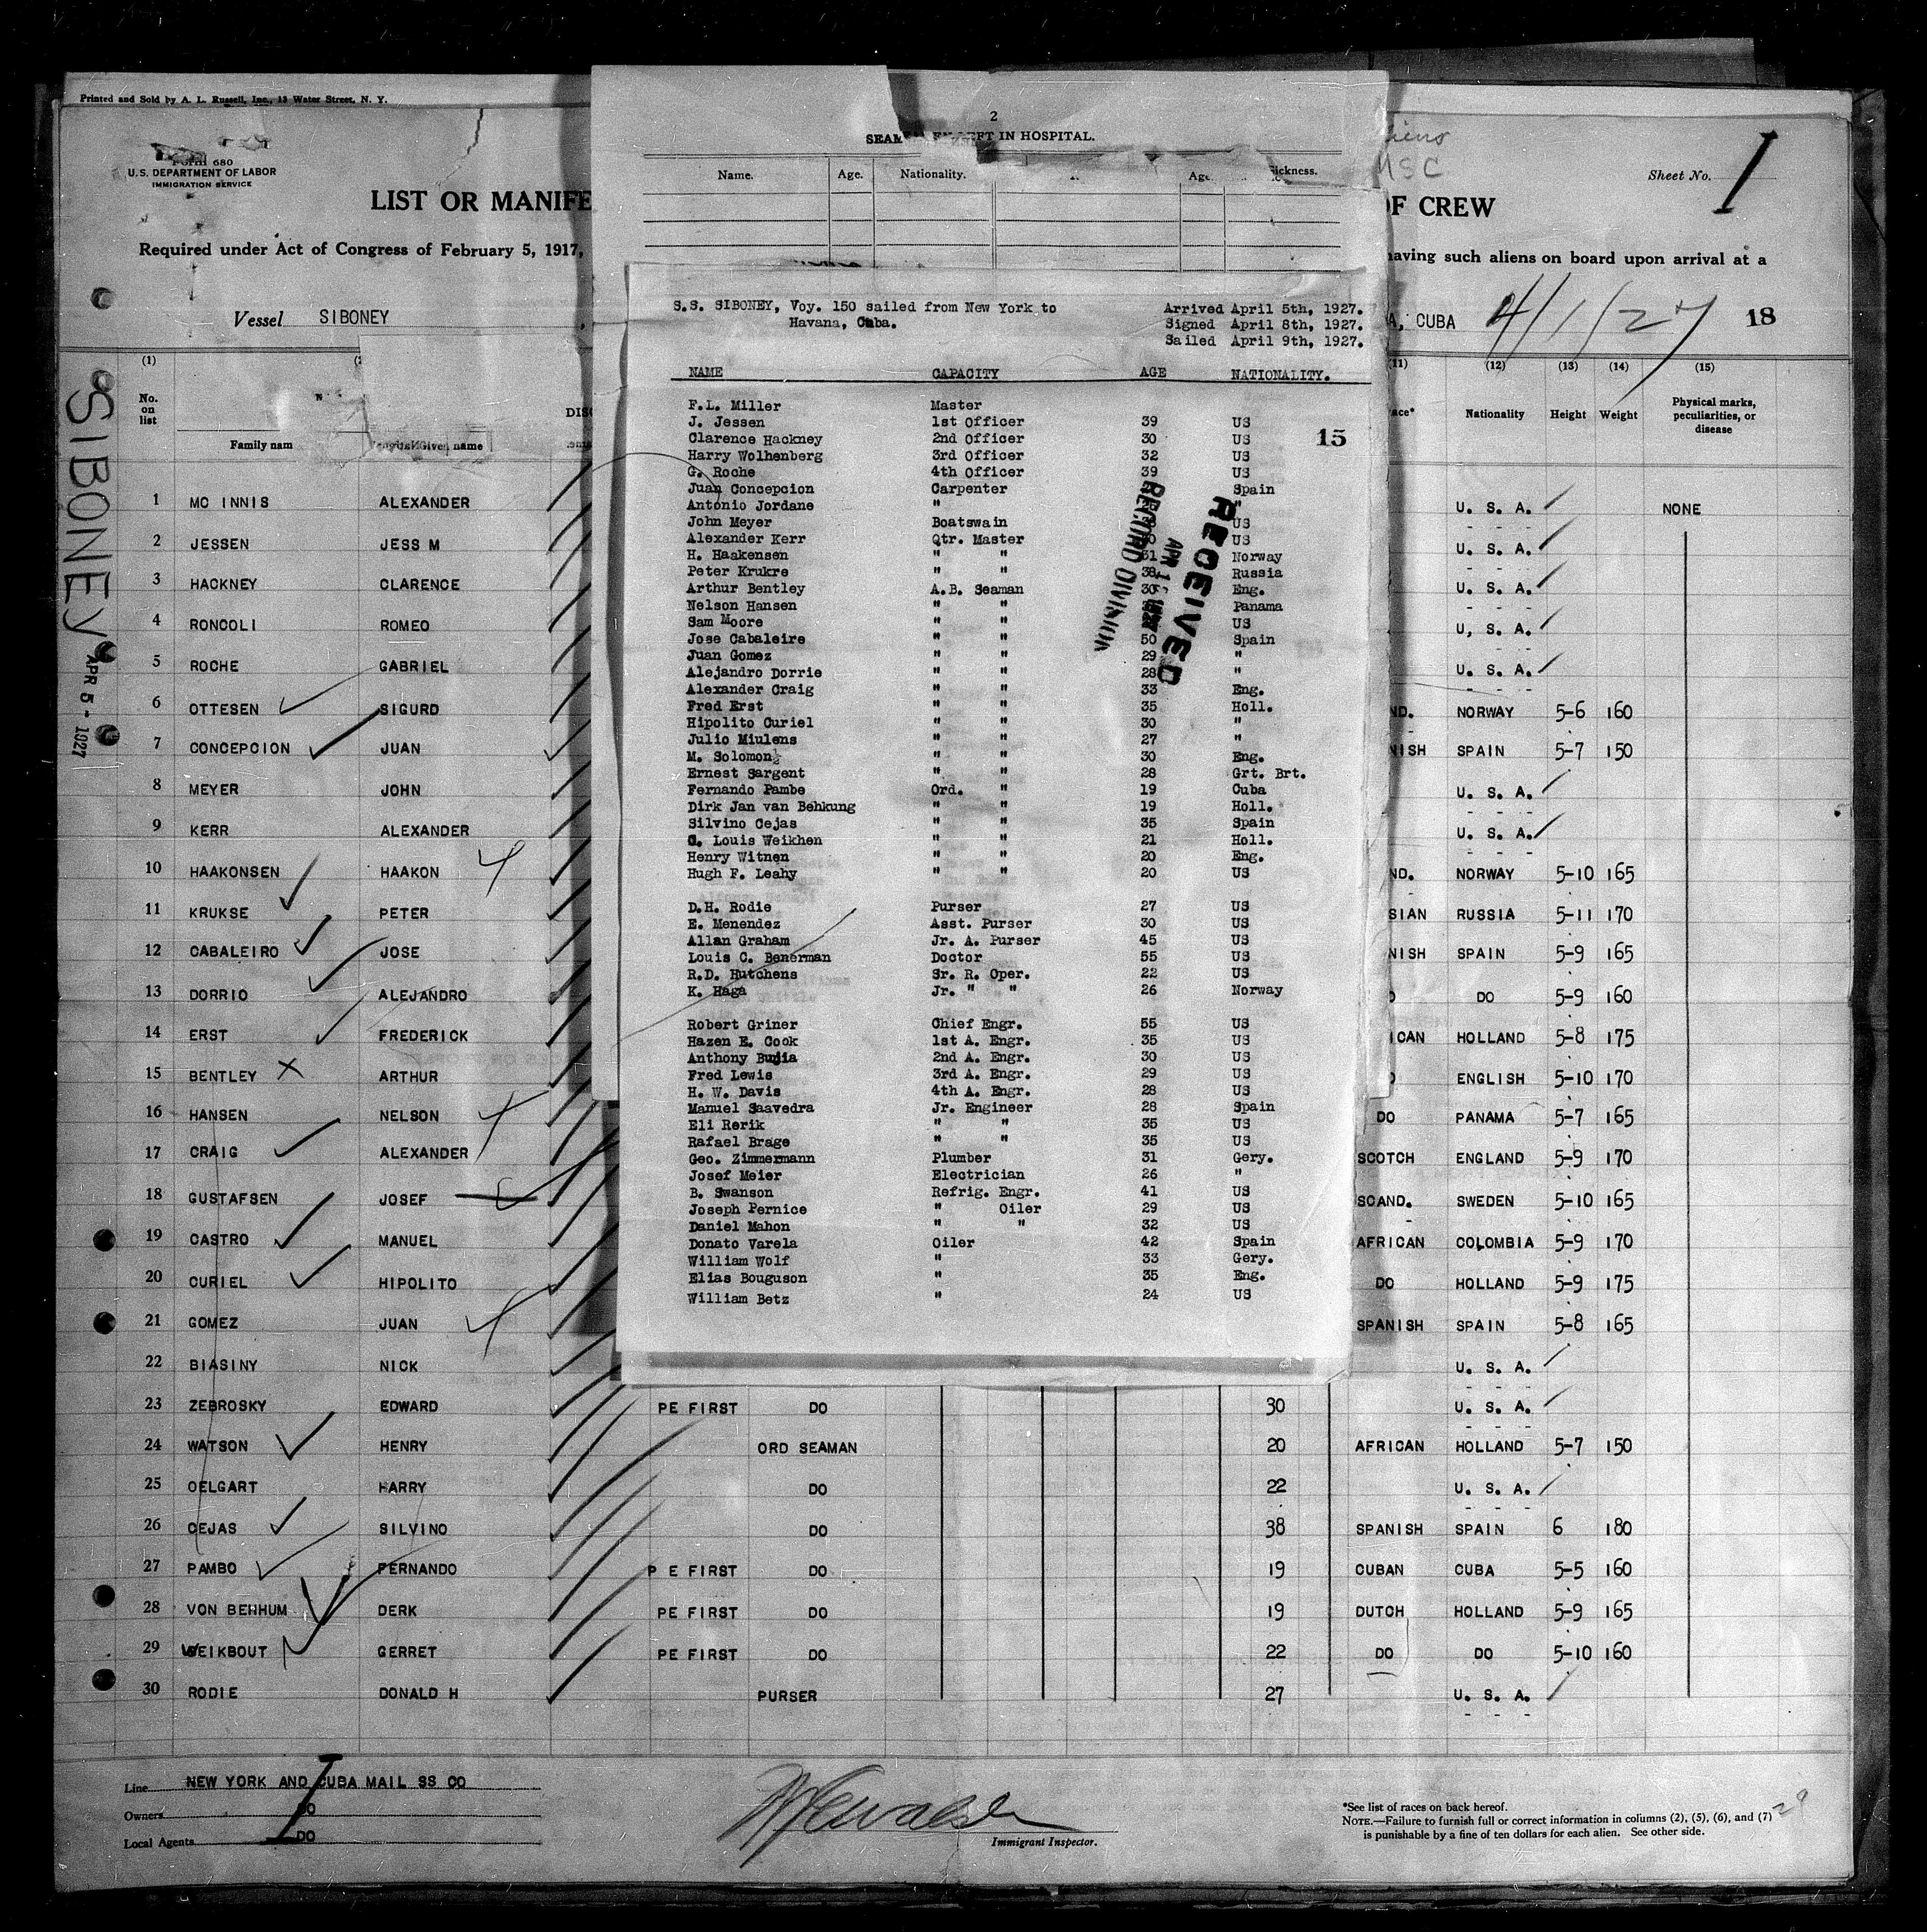 Printed and Sold by A. L. Russell, Inc., 13 Water Street, N. Y.
Form 680
U.S. DEPARTMENT OF LABOR
IMMIGRATION SERVICE
LIST OR MANIFE
OF CREW
Sheet No. 1
Required under Act of Congress of February 5, 1917,
having such aliens on board upon arrival at a
Vessel SIBONEY
A, CUBA 4/1/27 18
SIBONEY
APR 5 - 1927
2
IN HOSPITAL.
Name. Age. Nationality. Age. Sickness.
S.S. SIBONEY, Voy. 150 sailed from New York to Havana, Cuba.
Arrived April 5th, 1927.
Signed April 8th, 1927.
Sailed April 9th, 1927.
NAME CAPACITY AGE NATIONALITY.
F.L. Miller Master
J. Jessen 1st Officer 39 US
Clarence Hackney 2nd Officer 30 US
15
Harry Wolhenberg 3rd Officer 32 US
G. Roche 4th Officer 39 US
Juan Concepcion Carpenter Spain
Antonio Jordane "
John Meyer Boatswain US
Alexander Kerr Qtr. Master US
H. Haakensen " " 31 Norway
Peter Krukre " " 38 Russia
Arthur Bentley A.B. Seaman 30 Eng.
Nelson Hansen " " Panama
Sam Moore " " US
Jose Cabaleire " " 50 Spain
Juan Gomez " " 29 "
Alejandro Dorrie " " 28 "
Alexander Craig " " 33 Eng.
Fred Erst " " 35 Holl.
Hipolito Curiel " " 30 "
Julio Miulens " " 27 "
M. Solomon " " 30 Eng.
Ernest Sargent " " 28 Grt. Brt.
Fernando Pambe Ord. " 19 Cuba
Dirk Jan van Behkung " " 19 Holl.
Silvino Cejas " " 35 Spain
G. Louis Weikhen " " 21 Holl.
Henry Witnen " " 20 Eng.
Hugh F. Leahy " " 20 US
D.H. Rodie Purser 27 US
E. Menendez Asst. Purser 30 US
Allan Graham Jr. A. Purser 45 US
Louis C. Benerman Doctor 55 US
R.D. Hutchens Sr. R. Oper. 22 US
K. Haga Jr. " " 26 Norway
Robert Griner Chief Engr. 55 US
Hazen E. Cook 1st A. Engr. 35 US
Anthony Bujia 2nd A. Engr. 30 US
Fred Lewis 3rd A. Engr. 29 US
H. W. Davis 4th A. Engr. 28 US
Manuel Saavedra Jr. Engineer 28 Spain
Eli Rerik " " 35 US
Rafael Brage " " 35 US
Geo. Zimmermann Plumber 31 Gery.
Josef Meier Electrician 26 "
B. Swanson Refrig. Engr. 41 US
Joseph Pernice " Oiler 29 US
Daniel Mahon " " 32 US
Donato Varela Oiler 42 Spain
William Wolf " 33 Gery.
Elias Bouguson " 35 Eng.
William Betz " 24 US
RECEIVED
RECORD DIVISION
(1) (11) (12) (13) (14) (15)
No. on list Family nam Given name Nationality Height Weight Physical marks, peculiarities, or disease
1 MC INNIS ALEXANDER U. S. A. NONE
2 JESSEN JESS M U. S. A.
3 HACKNEY CLARENCE U. S. A.
4 RONCOLI ROMEO U, S. A.
5 ROCHE GABRIEL U. S. A.
6 OTTESEN SIGURD ND. NORWAY 5-6 160
7 CONCEPCION JUAN NISH SPAIN 5-7 150
8 MEYER JOHN U. S. A.
9 KERR ALEXANDER U. S. A.
10 HAAKONSEN HAAKON ND. NORWAY 5-10 165
11 KRUKSE PETER SIAN RUSSIA 5-11 170
12 CABALEIRO JOSE NISH SPAIN 5-9 165
13 DORRIO ALEJANDRO DO 5-9 160
14 ERST FREDERICK ICAN HOLLAND 5-8 175
15 BENTLEY ARTHUR ENGLISH 5-10 170
16 HANSEN NELSON DO PANAMA 5-7 165
17 CRAIG ALEXANDER SCOTCH ENGLAND 5-9 170
18 GUSTAFSEN JOSEF SCAND. SWEDEN 5-10 165
19 CASTRO MANUEL AFRICAN COLOMBIA 5-9 170
20 CURIEL HIPOLITO DO HOLLAND 5-9 175
21 GOMEZ JUAN SPANISH SPAIN 5-8 165
22 BIASINY NICK U. S. A.
23 ZEBROSKY EDWARD PE FIRST DO 30 U. S. A.
24 WATSON HENRY ORD SEAMAN 20 AFRICAN HOLLAND 5-7 150
25 OELGART HARRY DO 22 U. S. A.
26 CEJAS SILVINO DO 38 SPANISH SPAIN 6 180
27 PAMBO FERNANDO P E FIRST DO 19 CUBAN CUBA 5-5 160
28 VON BEHHUM DERK PE FIRST DO 19 DUTCH HOLLAND 5-9 165
29 WEIKBOUT GERRET PE FIRST DO 22 DO DO 5-10 160
30 RODIE DONALD H PURSER 27 U. S. A.
Line NEW YORK AND CUBA MAIL SS CO
Owners DO
Local Agents DO
Immigrant Inspector.
*See list of races on back hereof.
NOTE.—Failure to furnish full or correct information in columns (2), (5), (6), and (7)
is punishable by a fine of ten dollars for each alien. See other side.
29